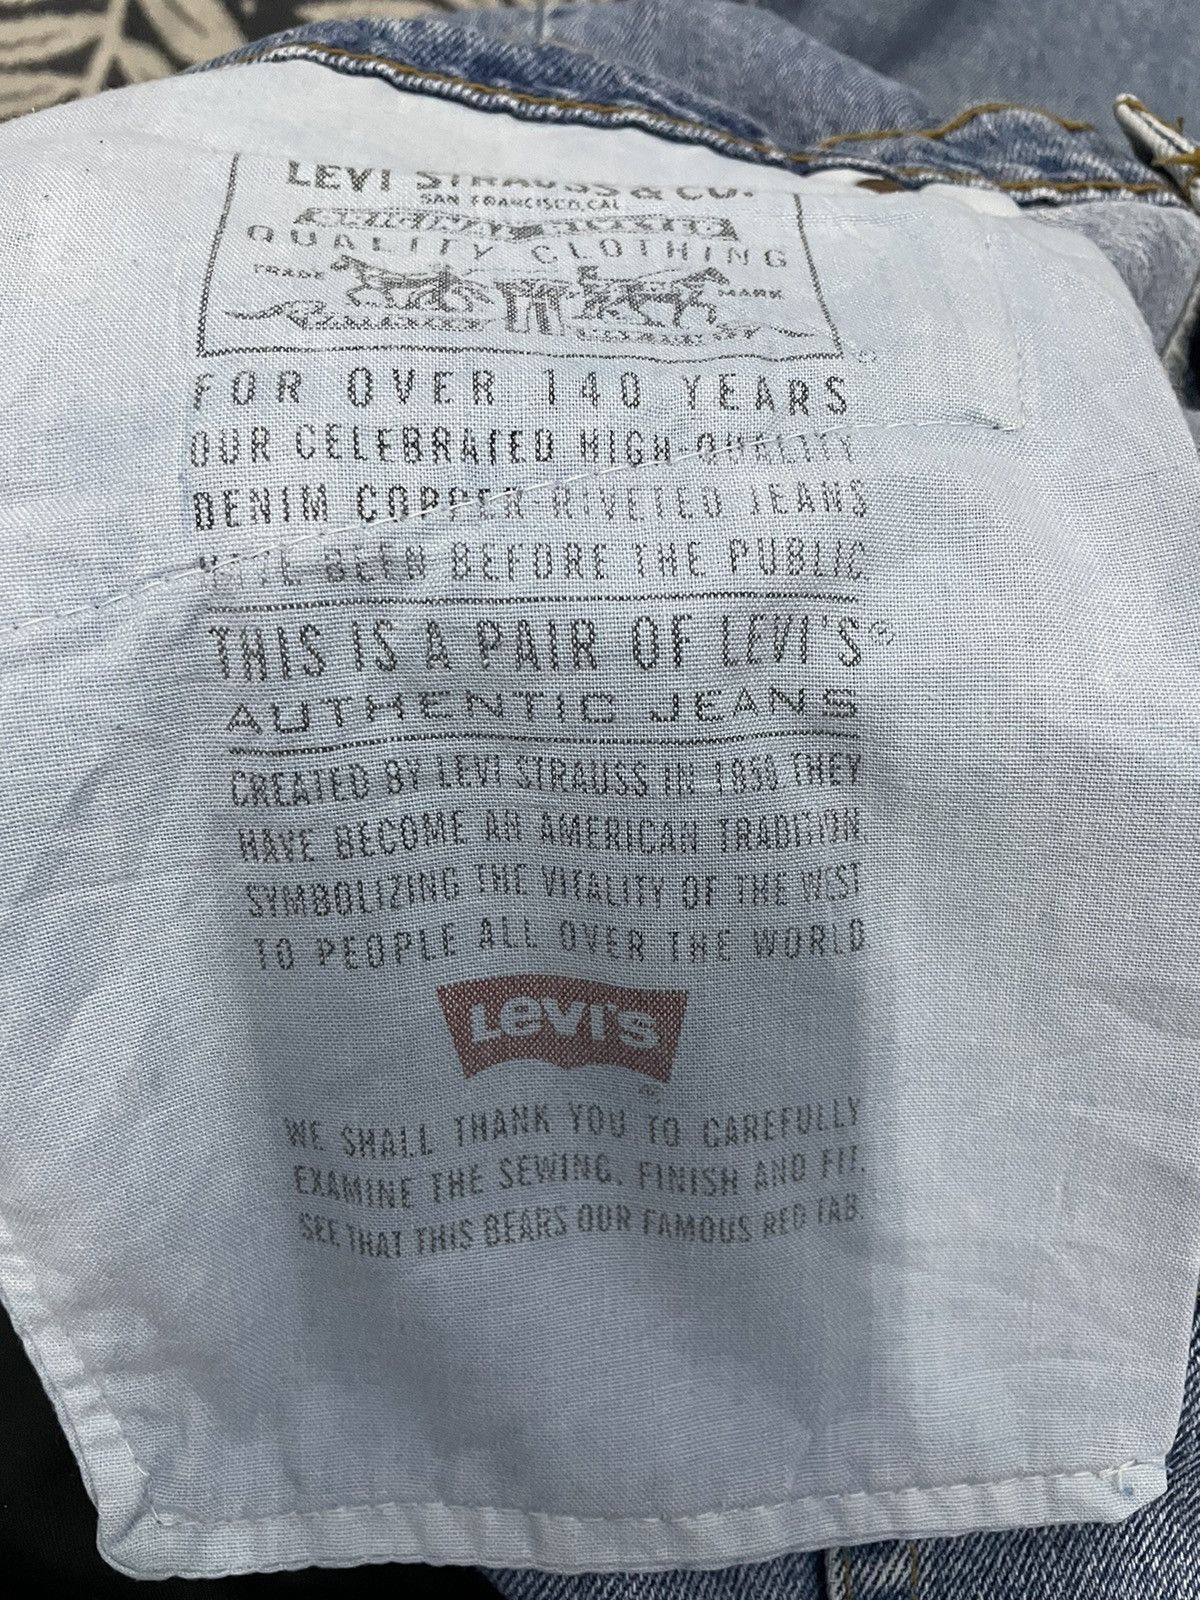 LEVI STRAUSS & CO.
SAN FRANCISCO, CAL
QUALITY CLOTHING
TRADE MARK
FOR OVER 140 YEARS
OUR CELEBRATED HIGH-QUALITY
DENIM COPPER-RIVETED JEANS
HAVE BEEN BEFORE THE PUBLIC
THIS IS A PAIR OF LEVI'S®
AUTHENTIC JEANS
CREATED BY LEVI STRAUSS IN 1850. THEY
HAVE BECOME AN AMERICAN TRADITION
SYMBOLIZING THE VITALITY OF THE WEST
TO PEOPLE ALL OVER THE WORLD
Levi's
WE SHALL THANK YOU TO CAREFULLY
EXAMINE THE SEWING, FINISH AND FIT.
SEE THAT THIS BEARS OUR FAMOUS RED TAB.